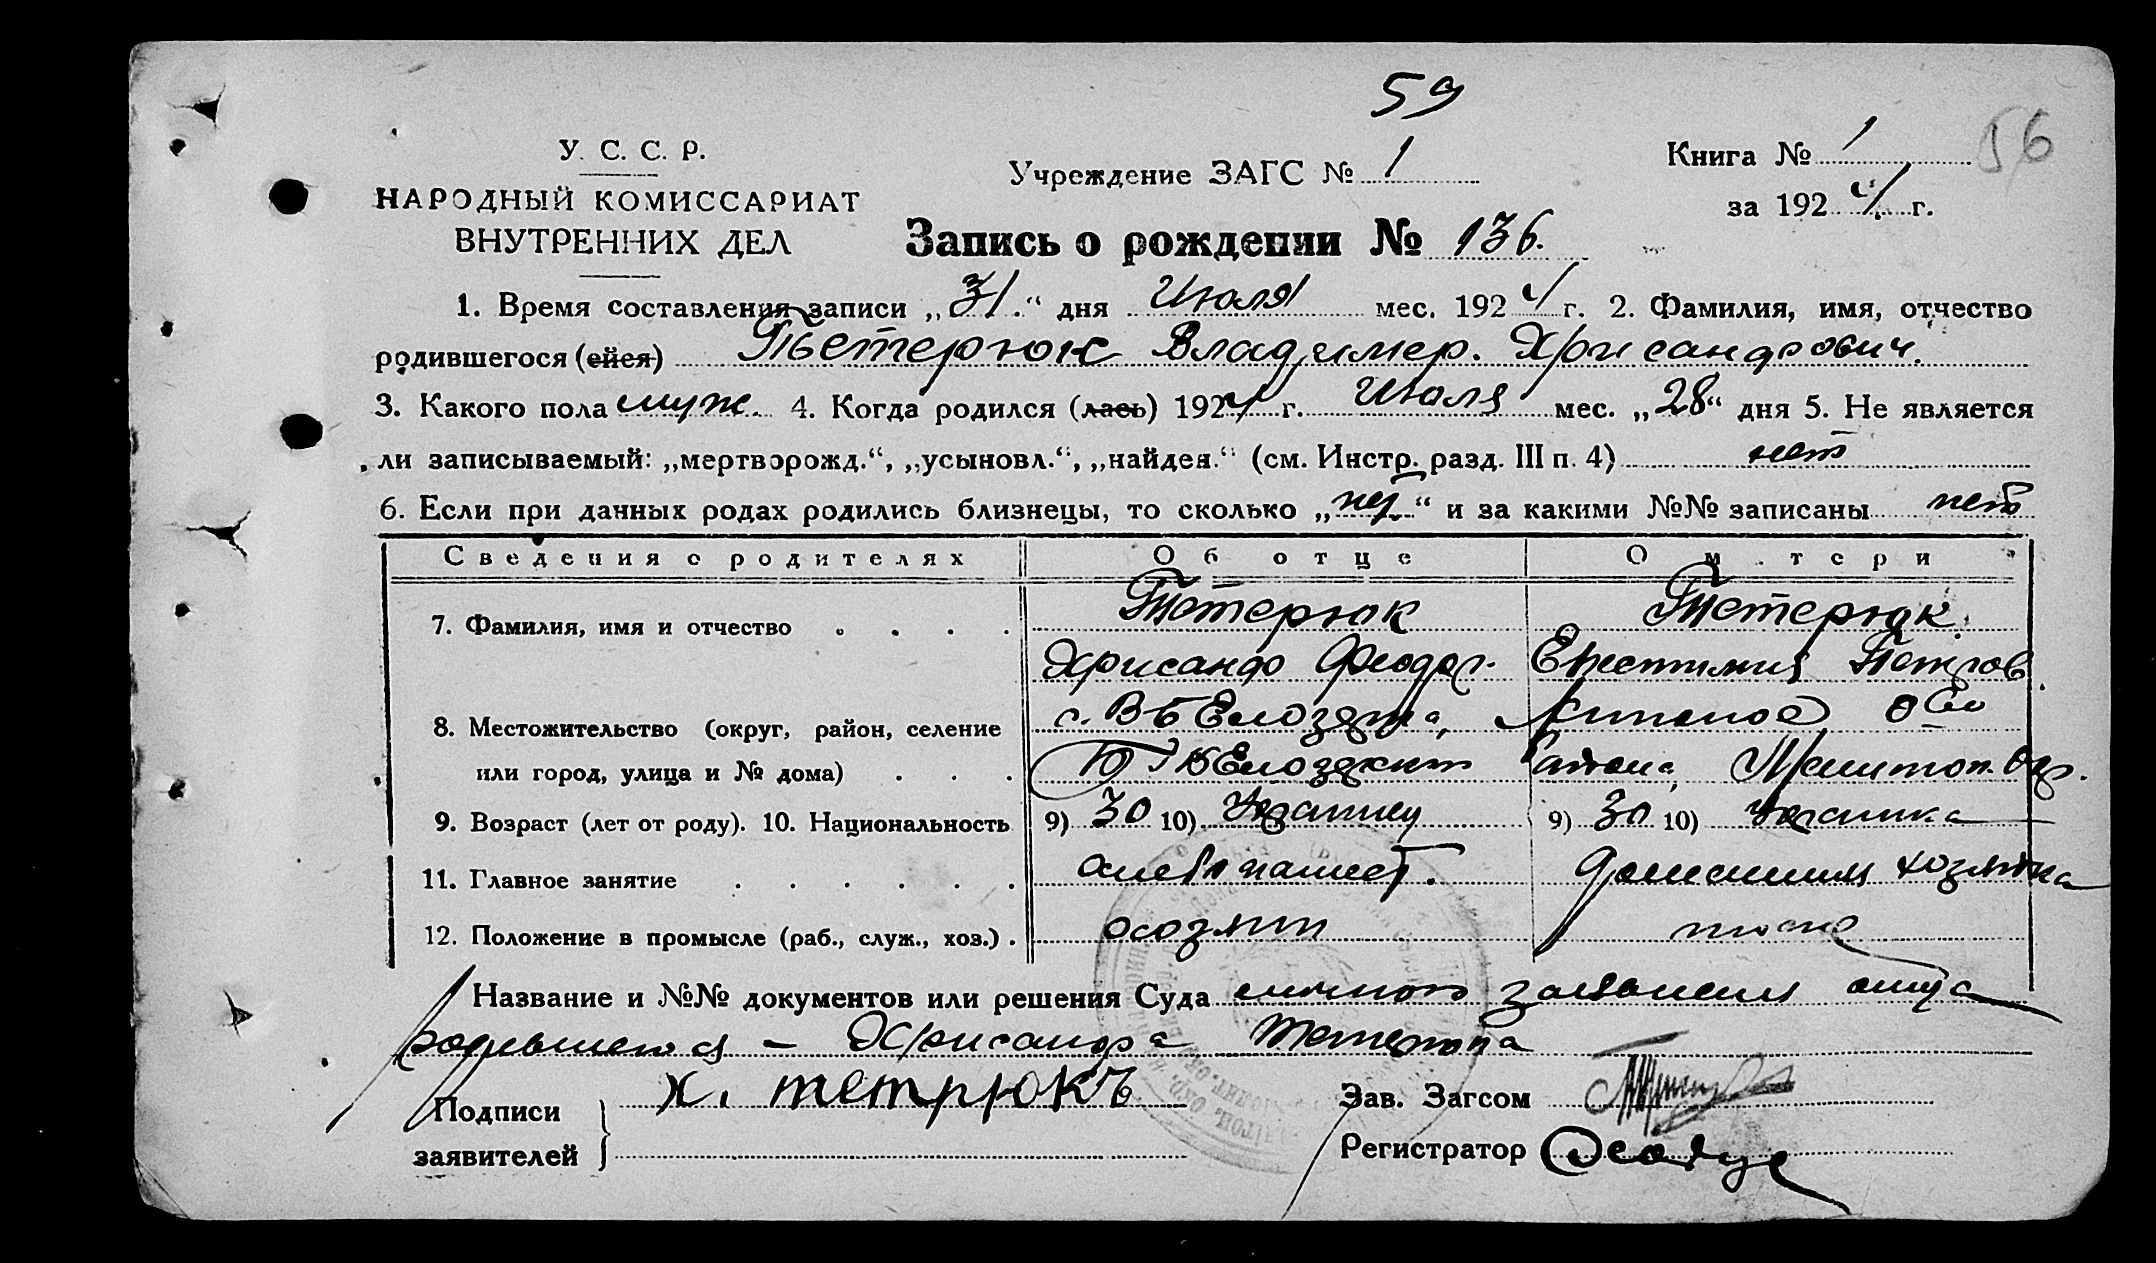 59
У. С. С. Р.
НАРОДНЫЙ КОМИССАРИАТ
ВНУТРЕННИХ ДЕЛ
Учреждение ЗАГС № 1
Книга № 1
56
за 1924 г.
Запись о рождении № 136.
1. Время составления записи „31.“ дня Июля мес. 1924 г. 2. Фамилия, имя, отчество
родившегося (ейся) Тетерюк Владимер. Хрисандрович.
3. Какого пола муж. 4. Когда родился (лась) 1924 г. Июля мес. „28“ дня 5. Не является
ли записываемый: „мертворожд.“, „усыновл.“, „найден.“ (см. Инстр. разд. III п. 4) нет
6. Если при данных родах родились близнецы, то сколько „нет“ и за какими №№ записаны нет
Сведения о родителях Об отце О матери
7. Фамилия, имя и отчество Тетерюк Тетерюк
Хрисандр Феодор. Петров
8. Местожительство (округ, район, селение с.
или город, улица и № дома) Района,
9. Возраст (лет от роду). 10. Национальность 9) 30 10) 9) 30 10)
11. Главное занятие хлебопашест. Домашняя хозяйка
12. Положение в промысле (раб., служ., хоз.) хозяин
Название и №№ документов или решения Суда личного заявления отца
родившегося – Хрисандра Тетерюка
Подписи
заявителей
х. тетрюкъ
Зав. Загсом
Регистратор